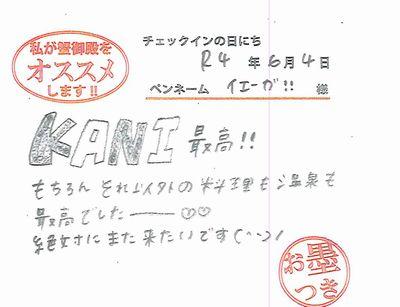 私が蟹御殿を
オススメ
します!!
チェックインの日にち
R4 年 6 月 4 日
ペンネーム イエーガ!! 様
KANI 最高!!
もちろん それ以外の料理も温泉も
最高でしたー♡♡
絶対にまた来たいです(^-^)/
お墨
つき